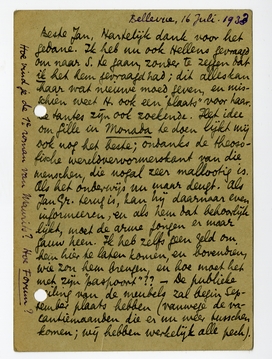 Bellevue, 16 Juli. 1933
Beste Jan, Hartelijk dank voor het
gebane. Ik heb nu ook Hellens gevraagd
om naar S. te gaan, zonder te zeggen dat
ik het hem gevraagd had; dit alles kan
haar wat nieuwe moed geven, en mis-
schien weet H. ook een "plaats" voor haar,
de tantes zijn ook zoekende. Het idee
om Gille in Monada te doen lijkt mij
ook nog het beste; ondanks de theoso-
fische wereldhervormerskant van die
menschen, die nogal zeer mallootig is.
Als het onderwijs nu maar deugt. Als
Jan Gr. terug is, kan hij daarnaar even
informeeren, en als hem dat behoorlijk
lijkt, moet de arme jongen er maar
gauw heen. Ik heb zelfs geen geld om
hem hier te laten komen, en bovendien,
wie zou hem brengen, en hoe moet het
met zijn paspoort?? — De publieke
veiling van de meubels zal begin Sep-
tember plaats hebben (vanwege de va-
cantiemaanden die er nu weer tusschen
komen; wij hebben werkelijk alle pech).
Hoe vind je de 1e roman van Vincent? Voor Forum?